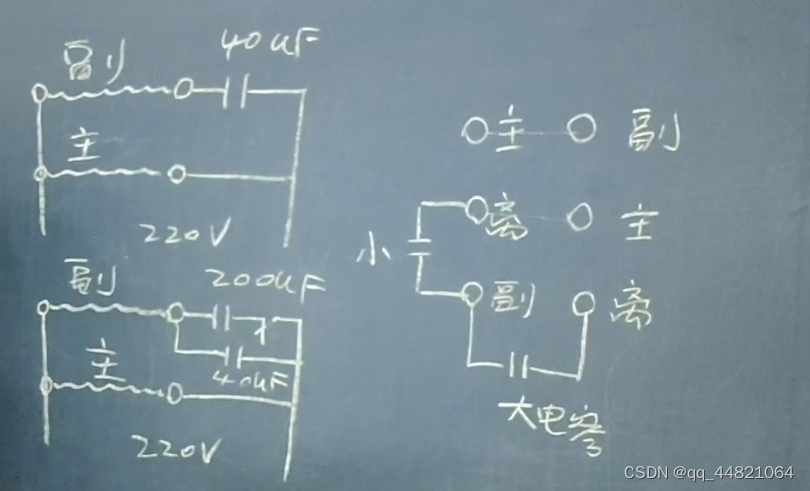 副 40uF
主
220V
副 200uF
40uF
主
220V
主 副
离 主
小
副 离
大电容
CSDN @qq_44821064